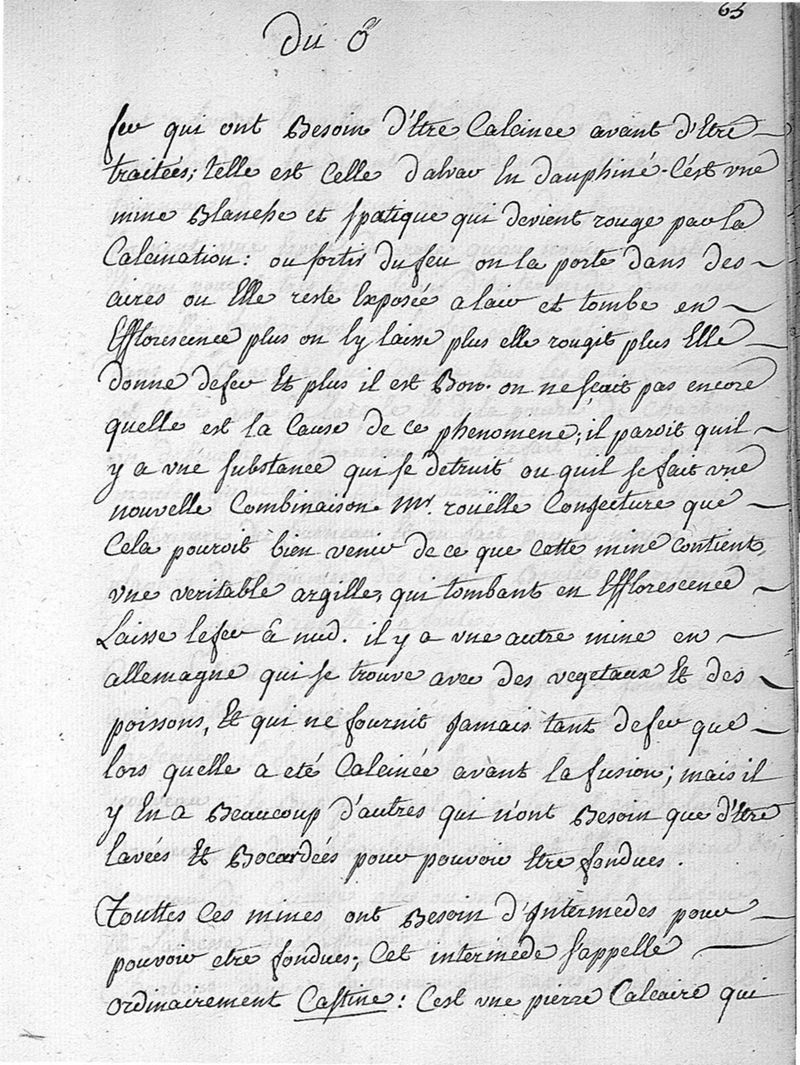 65
Du ♂
feu qui ont Besoin d'Etre Calcinee avant d'Etre
traitées; telle est Celle d'alvar En dauphiné. C'est vne
mine Blanche et spatique qui devient rouge par la
Calcination: au sortir du feu on la porte dans des
aires ou Elle reste Exposée a lair et tombe en
Efflorescence plus on ly laisse plus elle rougit plus Elle
donne de feu Et plus il est Bon. on ne sçait pas encore
quelle est la Cause de ce phenomene; il paroit quil
y a vne substance qui se detruit ou quil se fait vne
nouvelle Combinaison. Mr. rouëlle Confecture que
Cela pouroit bien venir de ce que cette mine contient,
vne veritable argille, qui tombant en Efflorescence
Laisse le feu à nud. il y a vne autre mine en
allemagne qui se trouve avec des vegetaux Et des
poissons, Et qui ne fournit Jamais tant de feu que
lors quelle a eté Calcinée avant la fusion; mais il
y En a Beaucoup d'autres qui n'ont Besoin que d'Etre
lavées Et Bocardées pour pouvoir Etre fondues.
Touttes Ces mines ont Besoin d'Intermedes pour
pouvoir etre fondues; Cet intermede s'appelle
ordinairement Castine: C'est vne pierre Calcaire qui